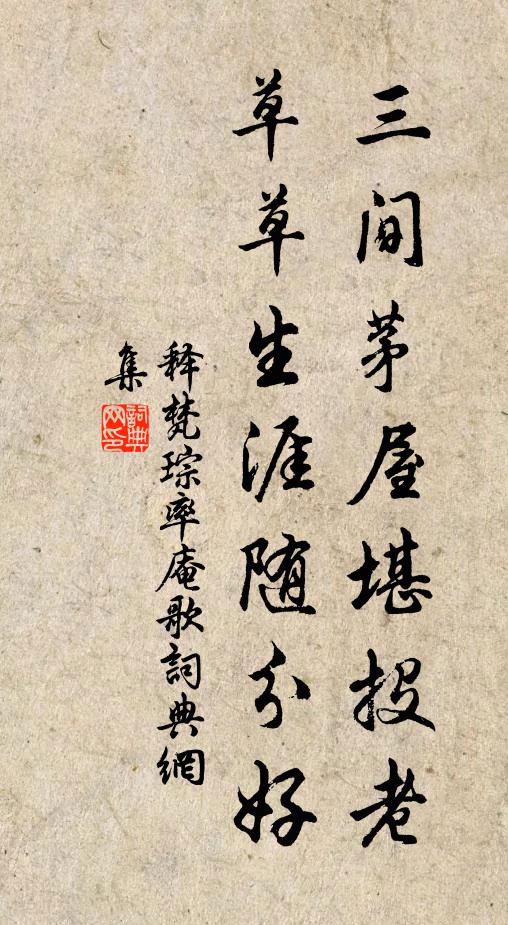 三间茅屋堪投老
草草生涯随分好
释梵琮率庵歌詞典網
集
詞典网印